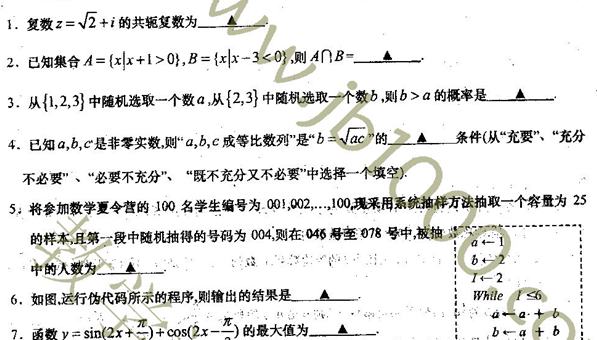 1. 复数 z = √2 + i 的共轭复数为 ▲ .
2. 已知集合 A = {x|x+1>0}, B = {x|x-3<0}, 则 A∩B= ▲ .
3. 从{1,2,3}中随机选取一个数a,从{2,3}中随机选取一个数b,则b>a的概率是 ▲ .
4. 已知a,b,c是非零实数,则“a,b,c成等比数列”是“b=√ac”的 ▲ 条件(从“充要”、“充分
不必要”、“必要不充分”、“既不充分又不必要”中选择一个填空).
5. 将参加数学夏令营的 100 名学生编号为 001,002,…,100,现采用系统抽样方法抽取一个容量为 25
的样本,且第一段中随机抽得的号码为 004,则在 046 号至 078 号中,被抽
中的人数为 ▲ .
a←1
b←2
I←2
While I≤6
a←a + b
b←a + b
6. 如图,运行伪代码所示的程序,则输出的结果是 ▲
7. 函数 y=sin(2x+π/ )+cos(2x-π/ ) 的最大值为 ▲ .
www.jb1000.co
教学